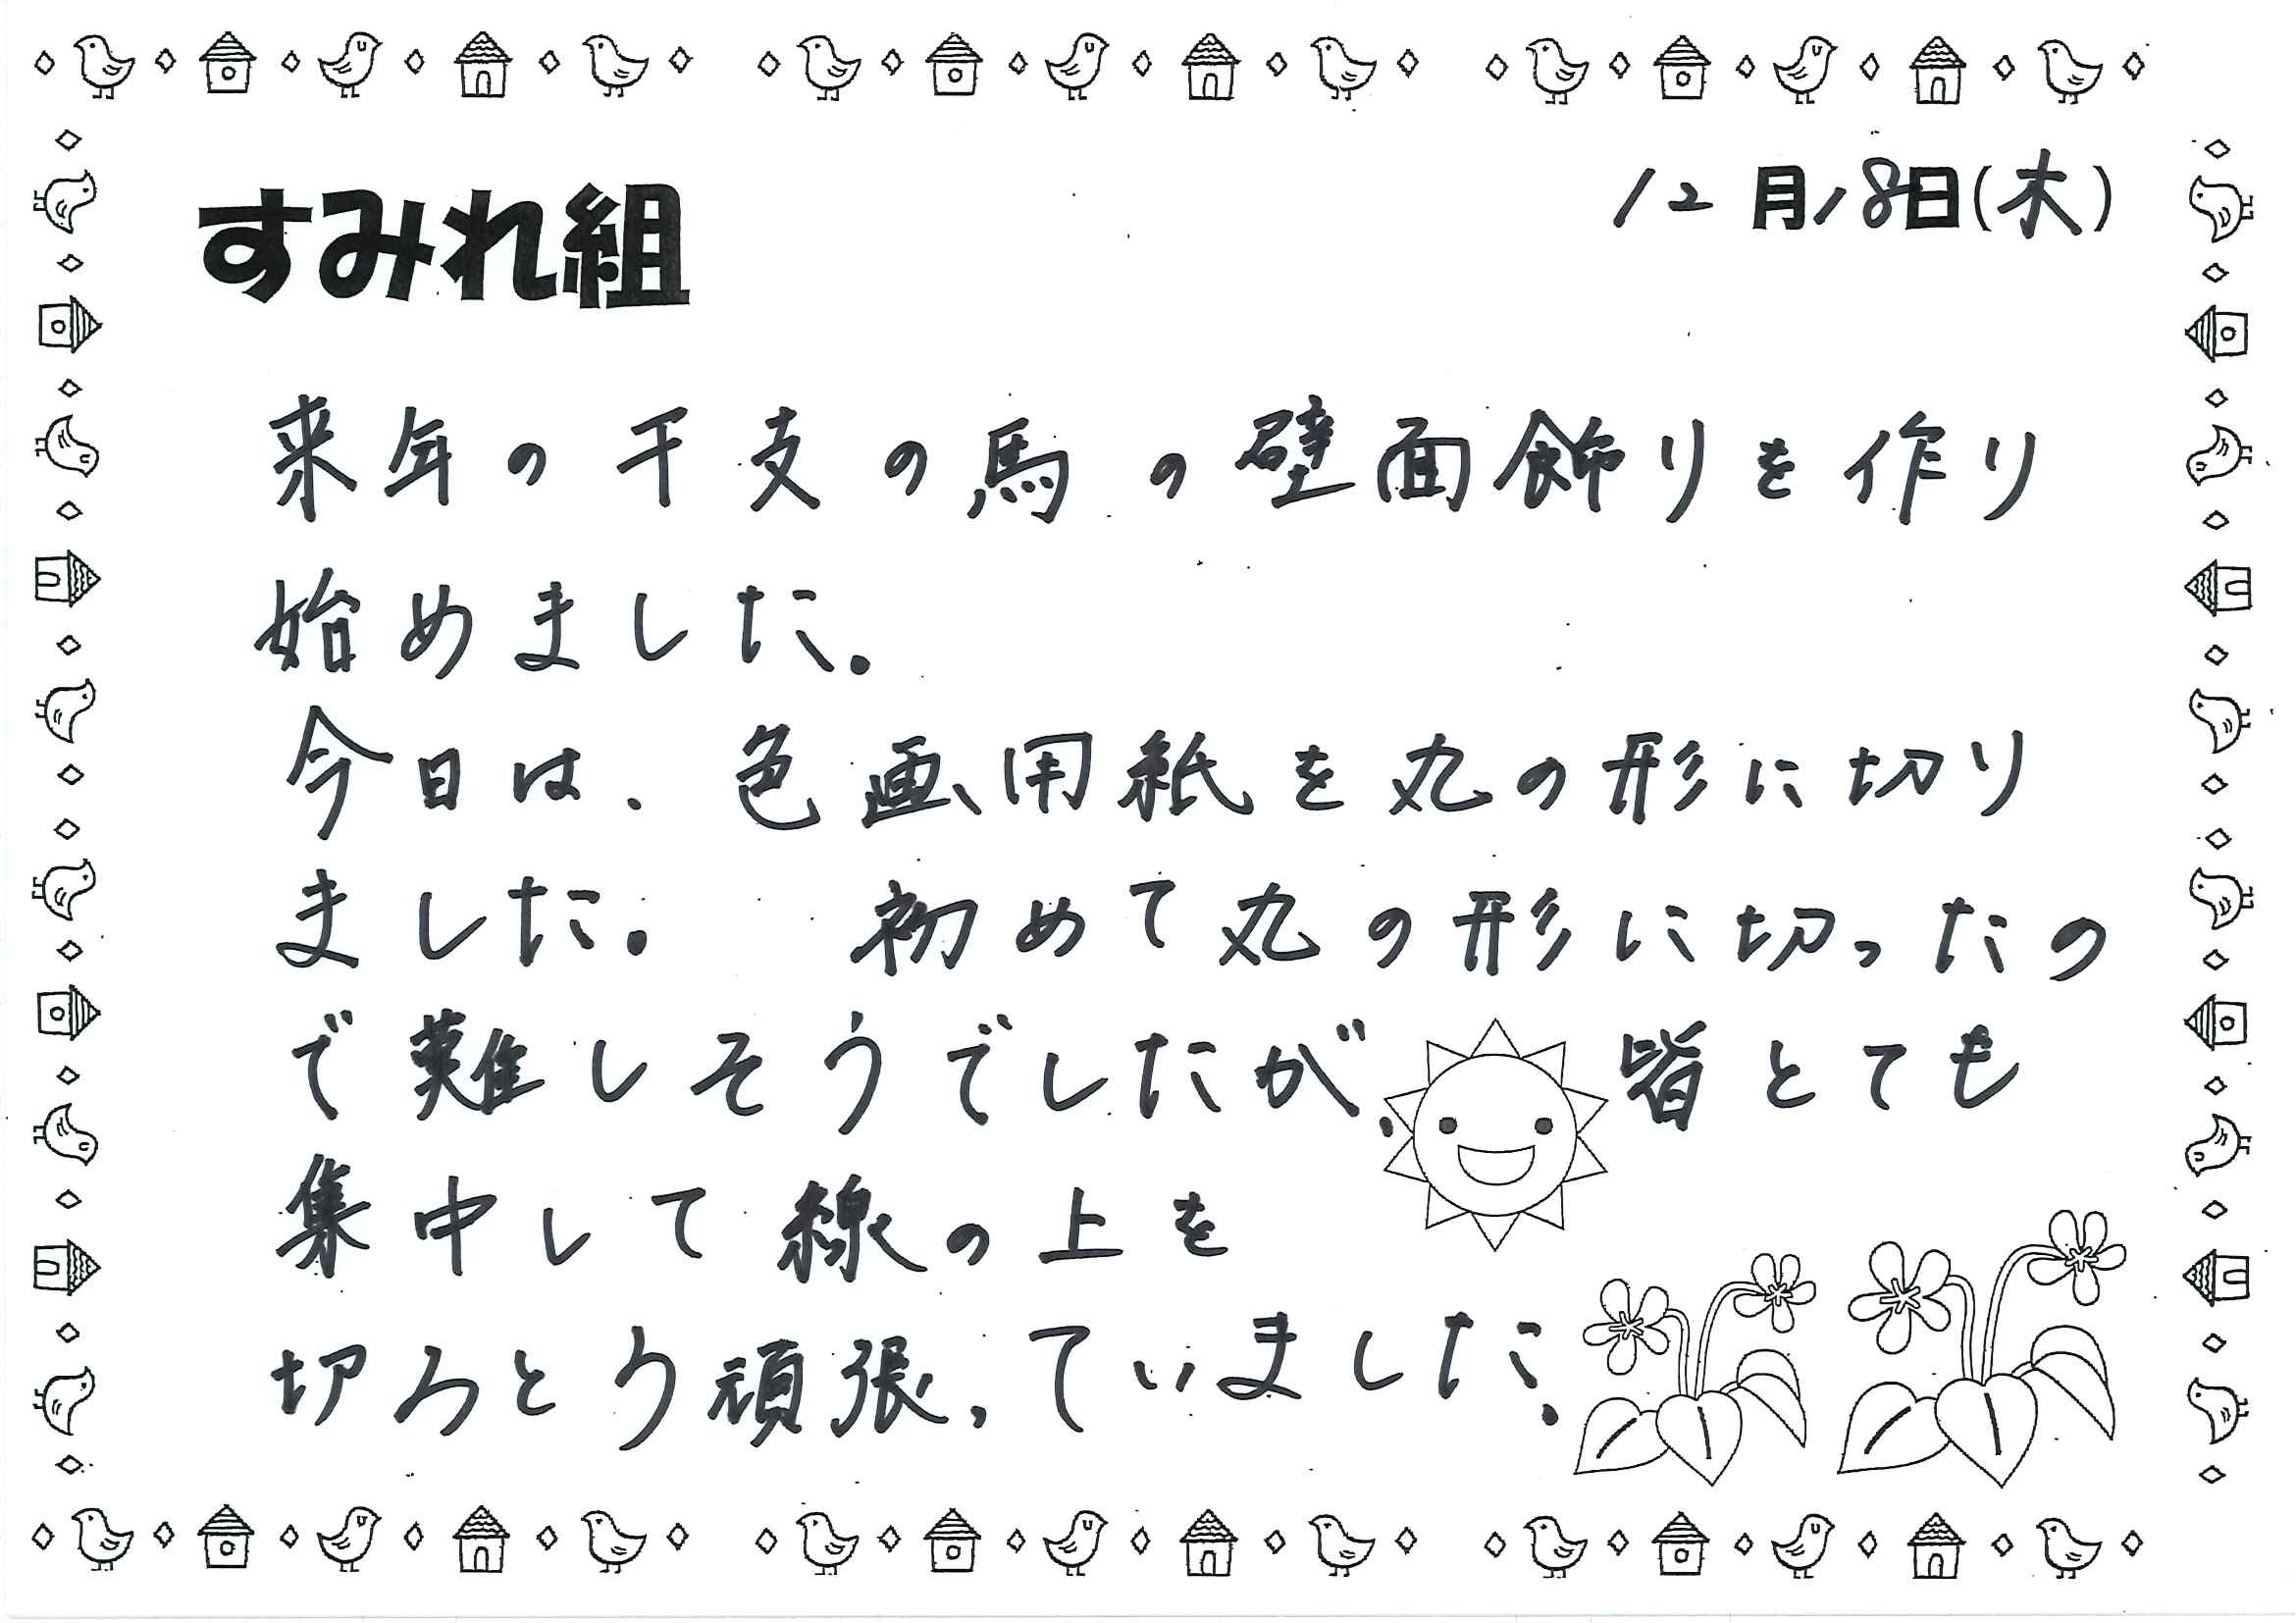 12月18日(木)
すみれ組
来年の干支の馬の壁面飾りを作り
始めました。
今日は、色画用紙を丸の形に切り
ました。 初めて丸の形に切ったの
で難しそうでしたが、皆とても
集中して線の上を
切ろとう頑張っていました。